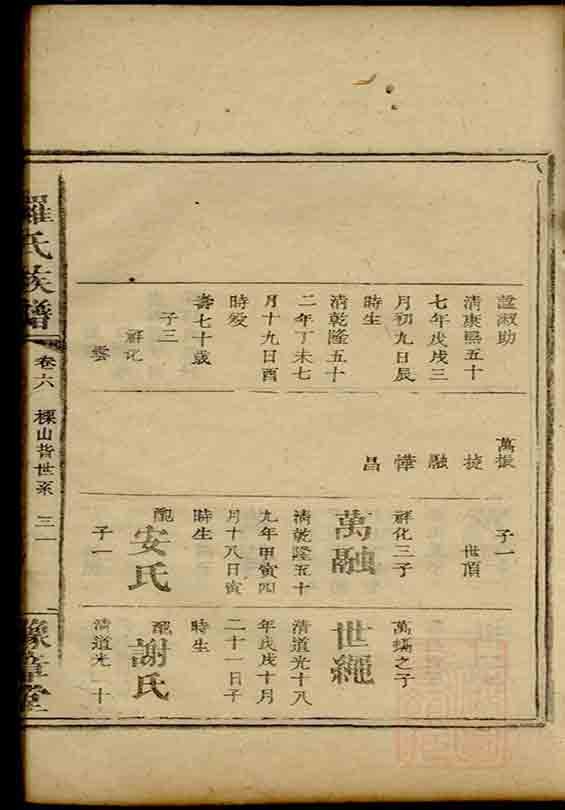 諡淑助
清康熙五十
七年戊戌三
月初九日辰
時生
清乾隆五十
二年丁未七
月十九日酉
時歿
壽七十歲
子三
祥化
雲
萬振
掟
融
燁
昌
子一
世頂
祥化三子
萬融
清乾隆五十
九年甲寅四
月十八日寅
時生
配安氏
子一
萬燏之子
世繩
清道光十八
年戊戌十月
二十一日子
時生
配謝氏
清道光二十
羅氏族譜
卷六
棵山背世系
三一
豫章堂